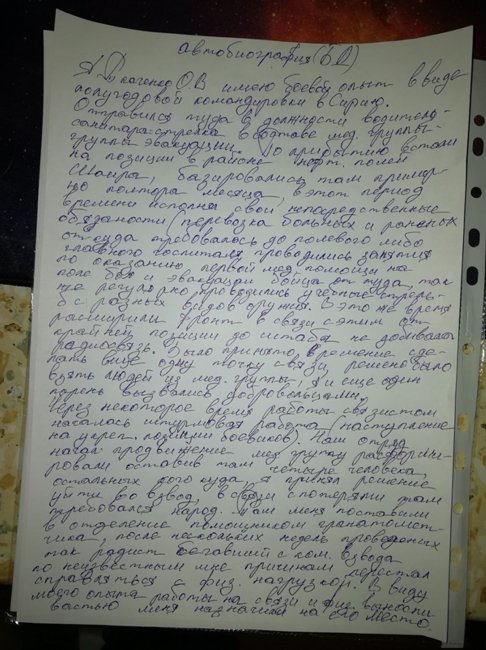 автобиография (БД)
Я Дкаченко О.В имею боевой опыт в виде
полугодовой командировки в Сирию.
Отправился туда в должности водитель-
санитара-стрелка в составе мед. группы-
группы эвакуации. По прибытию встали
на позиции в районе нефт. полей
Шаира, базировались там пример-
но полтора месяца, в этот период
времени исполнял свои непосредственные
обязаности (перевозка больных и раненых
откуда требовалось до полевого либо
главного госпиталя проводились занятия
по оказанию первой мед. помощи на
поле боя и эвакуации бойца от туда, так
же регулярно проводились учебные стрель-
бы с разных видов оружия. В это же время
расширили фронт в связи с этим от
крайней позиции до штаба не добивала
радиосвязь. Было принято решение сде-
лать еще одну точку связи, решено было
взять людей из мед. группы, я и еще один
парень вызвались добровольцами.
Через некоторое время работы связистом
началась штурмовая работа (наступление
на укреп. позиции боевиков). Наш отряд
начал продвижение мед группу расформи-
ровали оставив там четыре человека,
остальных кого куда, я принял решение
уйти во взвод, в связи с потерями там
требовался народ. Там меня поставили
в отделение помощником гранатомет-
чика, после нескольких недель проведеных
так радист бегавший с ком. взвода
по неизвестным мне причинам перестал
справляться с физ. нагрузкой. В виду
моего опыта работы на связи и физ. выносли-
востью меня назначили на его место.